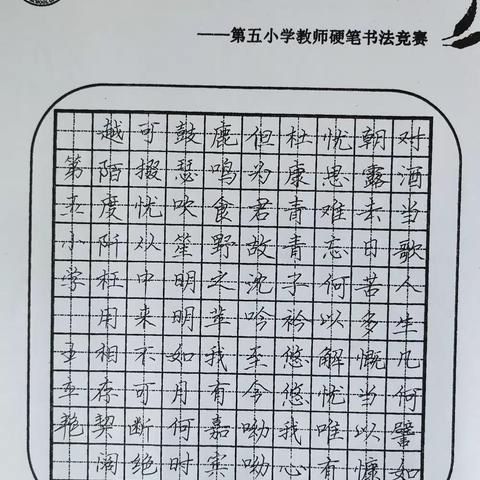 ——第五小学教师硬笔书法竞赛
对酒当歌人生几何譬如
朝露去日苦多慨当以慷
忧思难忘何以解忧唯有
杜康青青子衿悠悠我心
但为君故沈吟至今呦呦
鹿鸣食野之苹我有嘉宾
鼓瑟吹笙明明如月何时
可掇忧从中来不可断绝
越陌度阡枉用相存契阔
第五小学